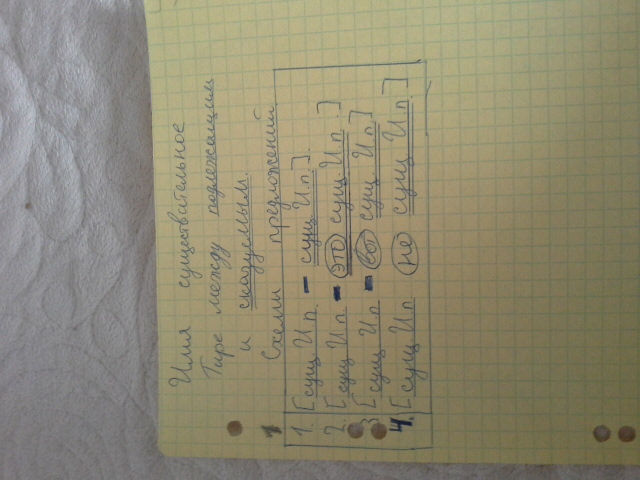 Имя существительное
Тире между подлежащим
и сказуемым.
Схемы предложений
1. [сущ И.п. – сущ И.п.].
2. [сущ И.п – это сущ И.п.]
3 [сущ И.п – вот сущ И.п]
4. [сущ И.п не сущ И.п.]